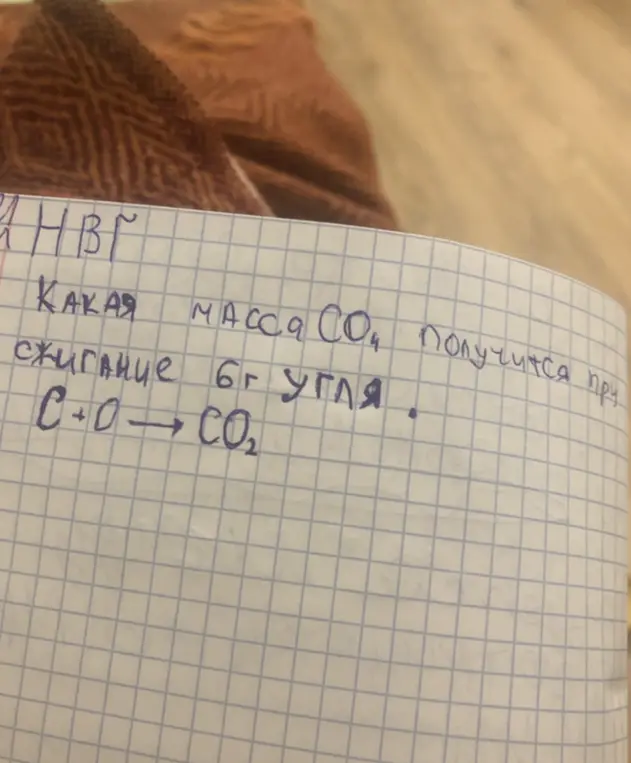 HBr
КАКАЯ МАССА CO₄ ПОЛУЧИТСЯ ПРИ
СЖИГАНИЕ 6г УГЛЯ.
C+O→CO₂